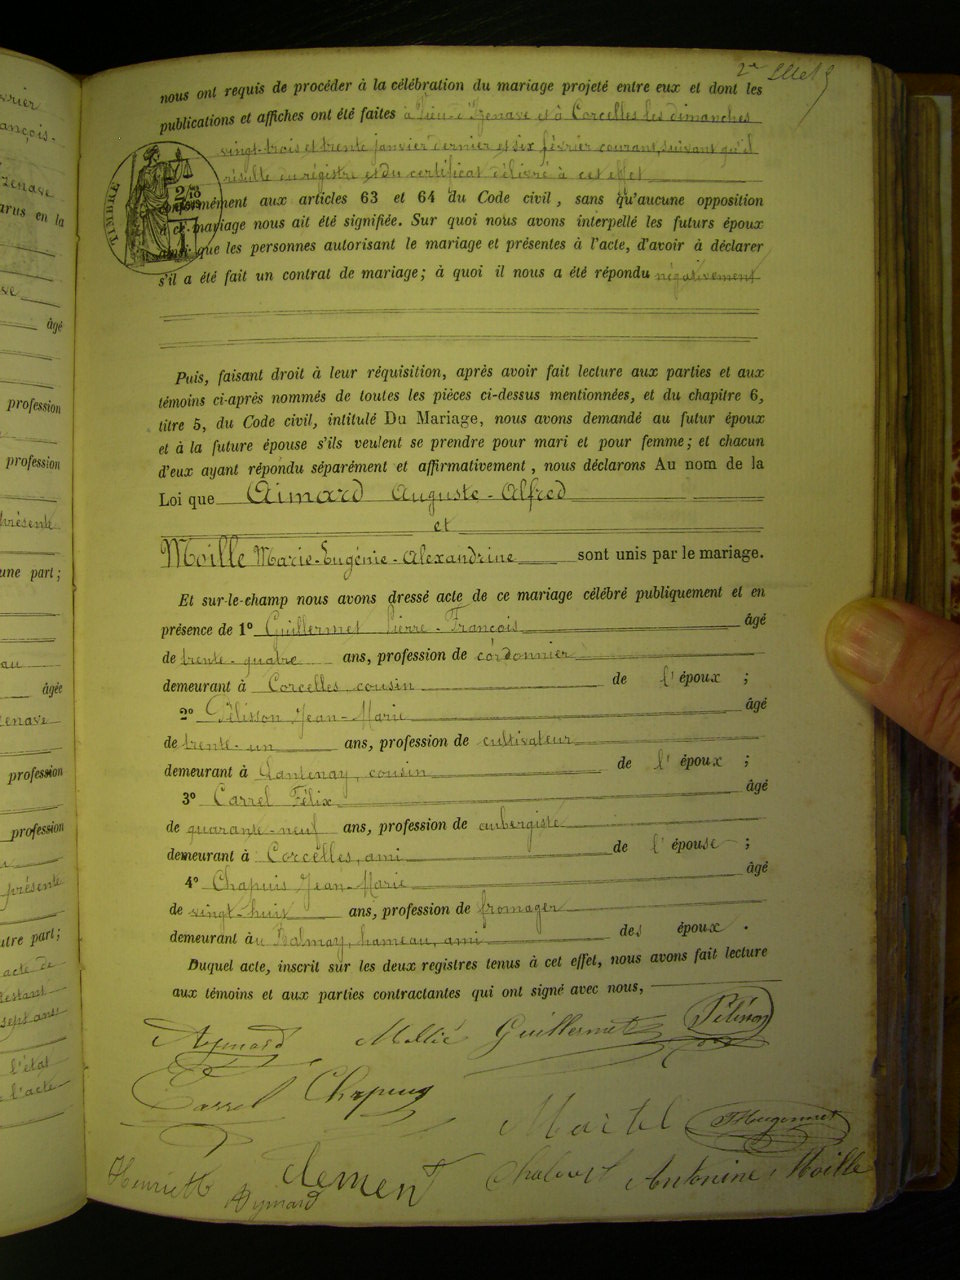 2e
nous ont requis de procéder à la célébration du mariage projeté entre eux et dont les
publications et affiches ont été faites à Vieu-d'Izenave et à Corcelles les dimanches
vingt-trois et trente janvier dernier et six février courant, suivant qu'il
résulte du régistre et du certificat délivré à cet effet
TIMBRE
conformément aux articles 63 et 64 du Code civil, sans qu'aucune opposition
à ce mariage nous ait été signifiée. Sur quoi nous avons interpellé les futurs époux
ainsi que les personnes autorisant le mariage et présentes à l'acte, d'avoir à déclarer
s'il a été fait un contrat de mariage; à quoi il nous a été répondu négativement
Puis, faisant droit à leur réquisition, après avoir fait lecture aux parties et aux
témoins ci-après nommés de toutes les pièces ci-dessus mentionnées, et du chapitre 6,
titre 5, du Code civil, intitulé Du Mariage, nous avons demandé au futur époux
et à la future épouse s'ils veulent se prendre pour mari et pour femme; et chacun
d'eux ayant répondu séparément et affirmativement, nous déclarons Au nom de la
Loi que Aimard Auguste-Alfred
et
Moille Marie-Eugénie-Alexandrine sont unis par le mariage.
Et sur-le-champ nous avons dressé acte de ce mariage célébré publiquement et en
présence de 1° Guillermet Pierre-François âgé
de trente-quatre ans, profession de cordonnier
demeurant à Corcelles, cousin de l'époux ;
2° Pélisson Jean-Marie âgé
de trente-un ans, profession de cultivateur
demeurant à Lantenay, cousin de l'époux ;
3° Carrel Félix âgé
de quarante-neuf ans, profession de aubergiste
demeurant à Corcelles, ami de l'épouse ;
4° Chapuis Jean-Marie âgé
de vingt-huit ans, profession de fromager
demeurant au Balmay, hameau, ami des époux.
Duquel acte, inscrit sur les deux registres tenus à cet effet, nous avons fait lecture
aux témoins et aux parties contractantes qui ont signé avec nous,
Aymard Guillermet Pélisson
Carrel Chapuis
Martel Hugonnet
Aymard Clement Antonine Moille